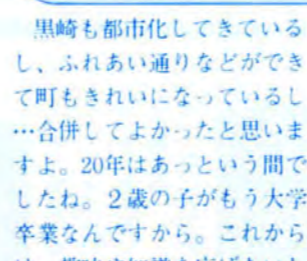 黒崎も都市化してきている
し、ふれあい通りなどができ
て町もきれいになっているし
…合併してよかったと思いま
すよ。20年はあっという間で
したね。２歳の子がもう大学
卒業なんですから。これから